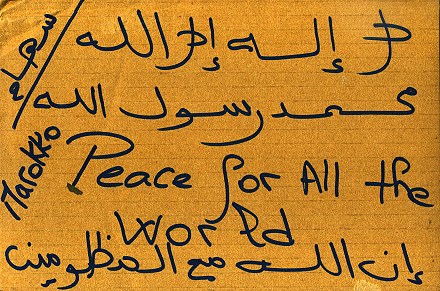 لا إله إلا الله
محمد رسول الله
Peace for All the
World
إن الله مع المظلومين
Marokko